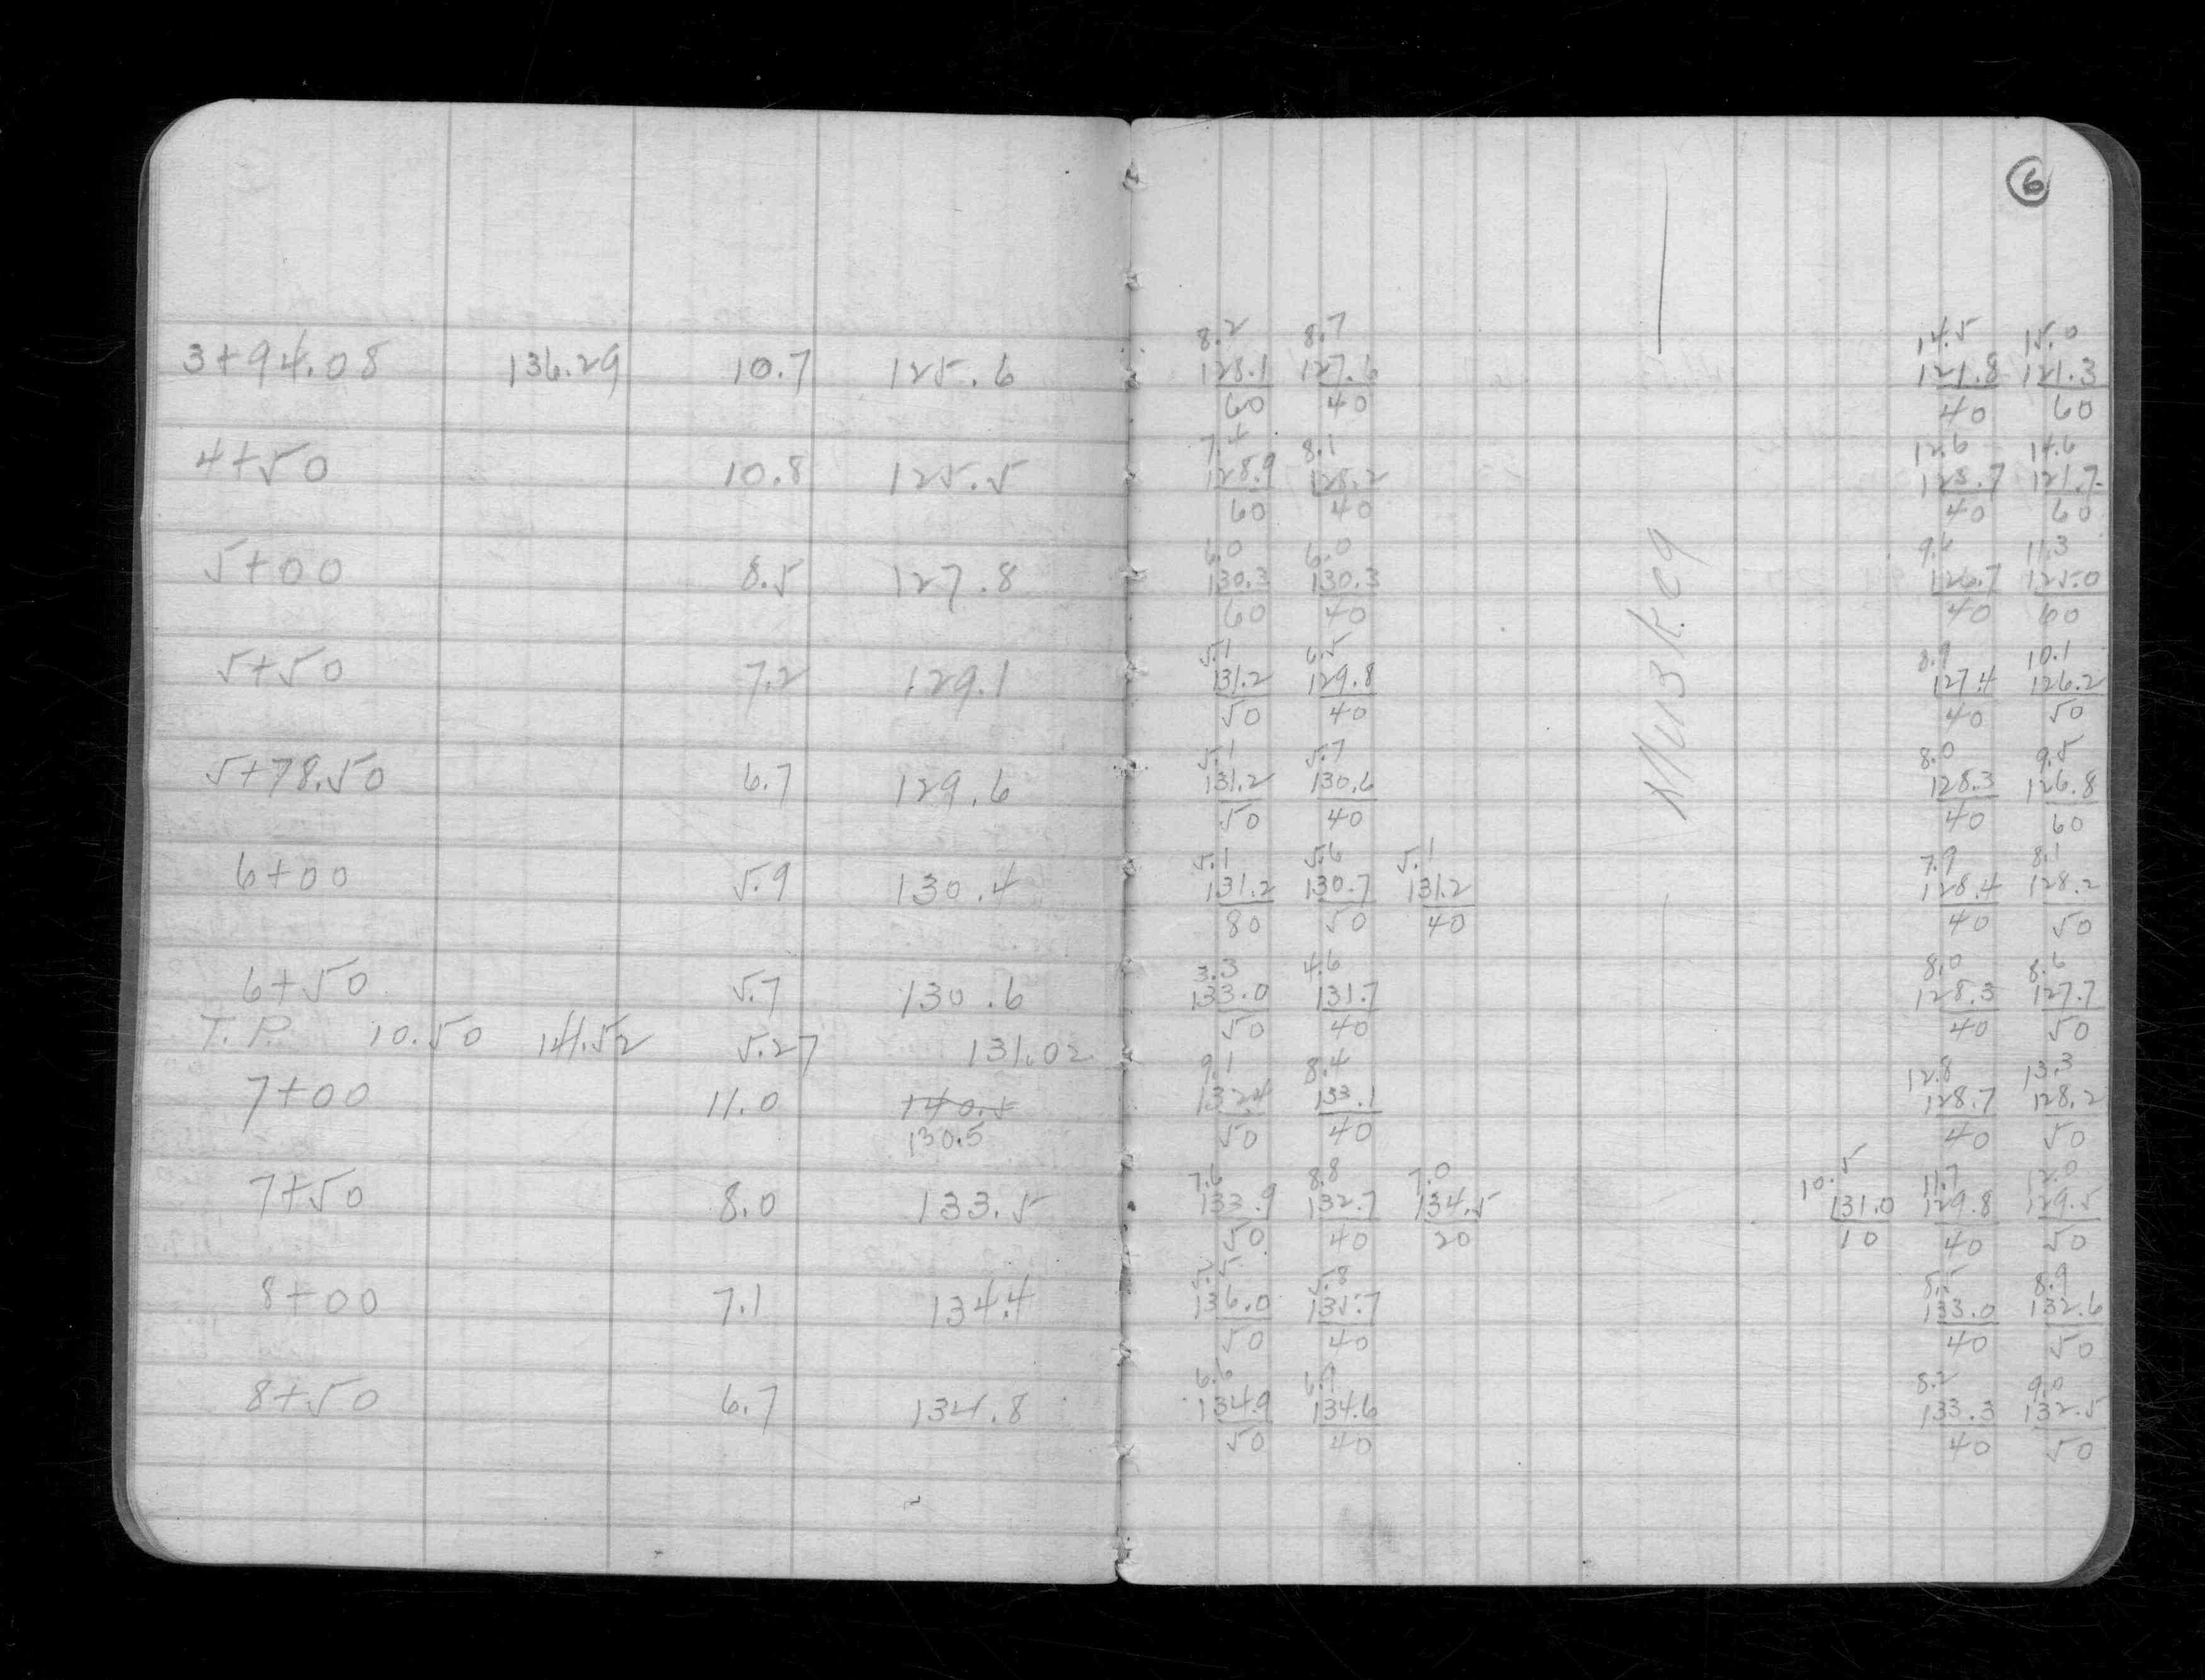 6
3+94.08 136.29 10.7 125.6
8.2 8.7 14.5 15.0
128.1 127.6 121.8 121.3
60 40 40 60
4+50 10.8 125.5
7.4 8.1 12.6 14.6
128.9 128.2 123.7 121.7
60 40 40 60
5+00 8.5 127.8
6.0 6.0 9.6 11.3
130.3 130.3 126.7 125.0
60 40 40 60
5+50 7.2 129.1
5.1 6.5 8.9 10.1
131.2 129.8 127.4 126.2
50 40 40 50
5+78.50 6.7 129.6
5.1 5.7 8.0 9.5
131.2 130.6 128.3 126.8
50 40 40 60
6+00 5.9 130.4
5.1 5.6 5.1 7.9 8.1
131.2 130.7 131.2 128.4 128.2
80 50 40 40 50
6+50 5.7 130.6
3.3 4.6 8.0 8.6
133.0 131.7 128.3 127.7
50 40 40 50
T.P. 10.50 141.52 5.27 131.02
7+00 11.0 140.5
130.5
9.1 8.4 12.8 13.3
132.4 133.1 128.7 128.2
50 40 40 50
7+50 8.0 133.5
7.6 8.8 7.0 10.5 11.7 12.0
133.9 132.7 134.5 131.0 129.8 129.5
50 40 20 10 40 50
8+00 7.1 134.4
5.5 5.8 8.5 8.9
136.0 135.7 133.0 132.6
50 40 40 50
8+50 6.7 134.8
6.6 6.9 8.2 9.0
134.9 134.6 133.3 132.5
50 40 40 50